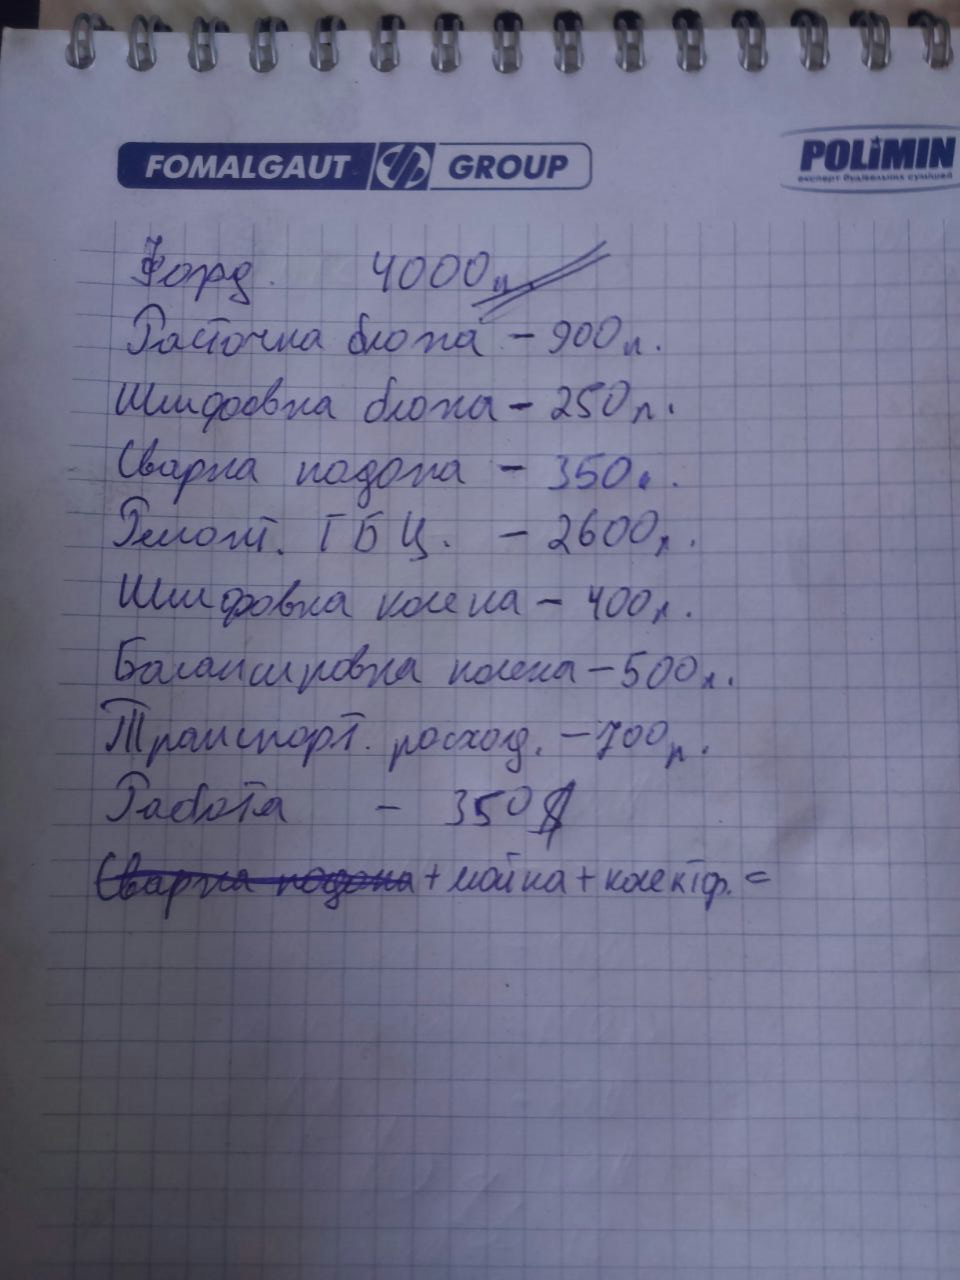 FOMALGAUT GROUP
POLIMIN
експерт будівельних сумішей
Форд. 4000л
Расточка блока - 900л.
Шлифовка блока - 250л.
Сварка подона - 350л.
Ремонт. ГБЦ. - 2600л.
Шлифовка колена - 400л.
Балансировка колена - 500л.
Транспорт. расход. - 700л.
Работа - 350$
Сварка подона + мойка + колектор. =